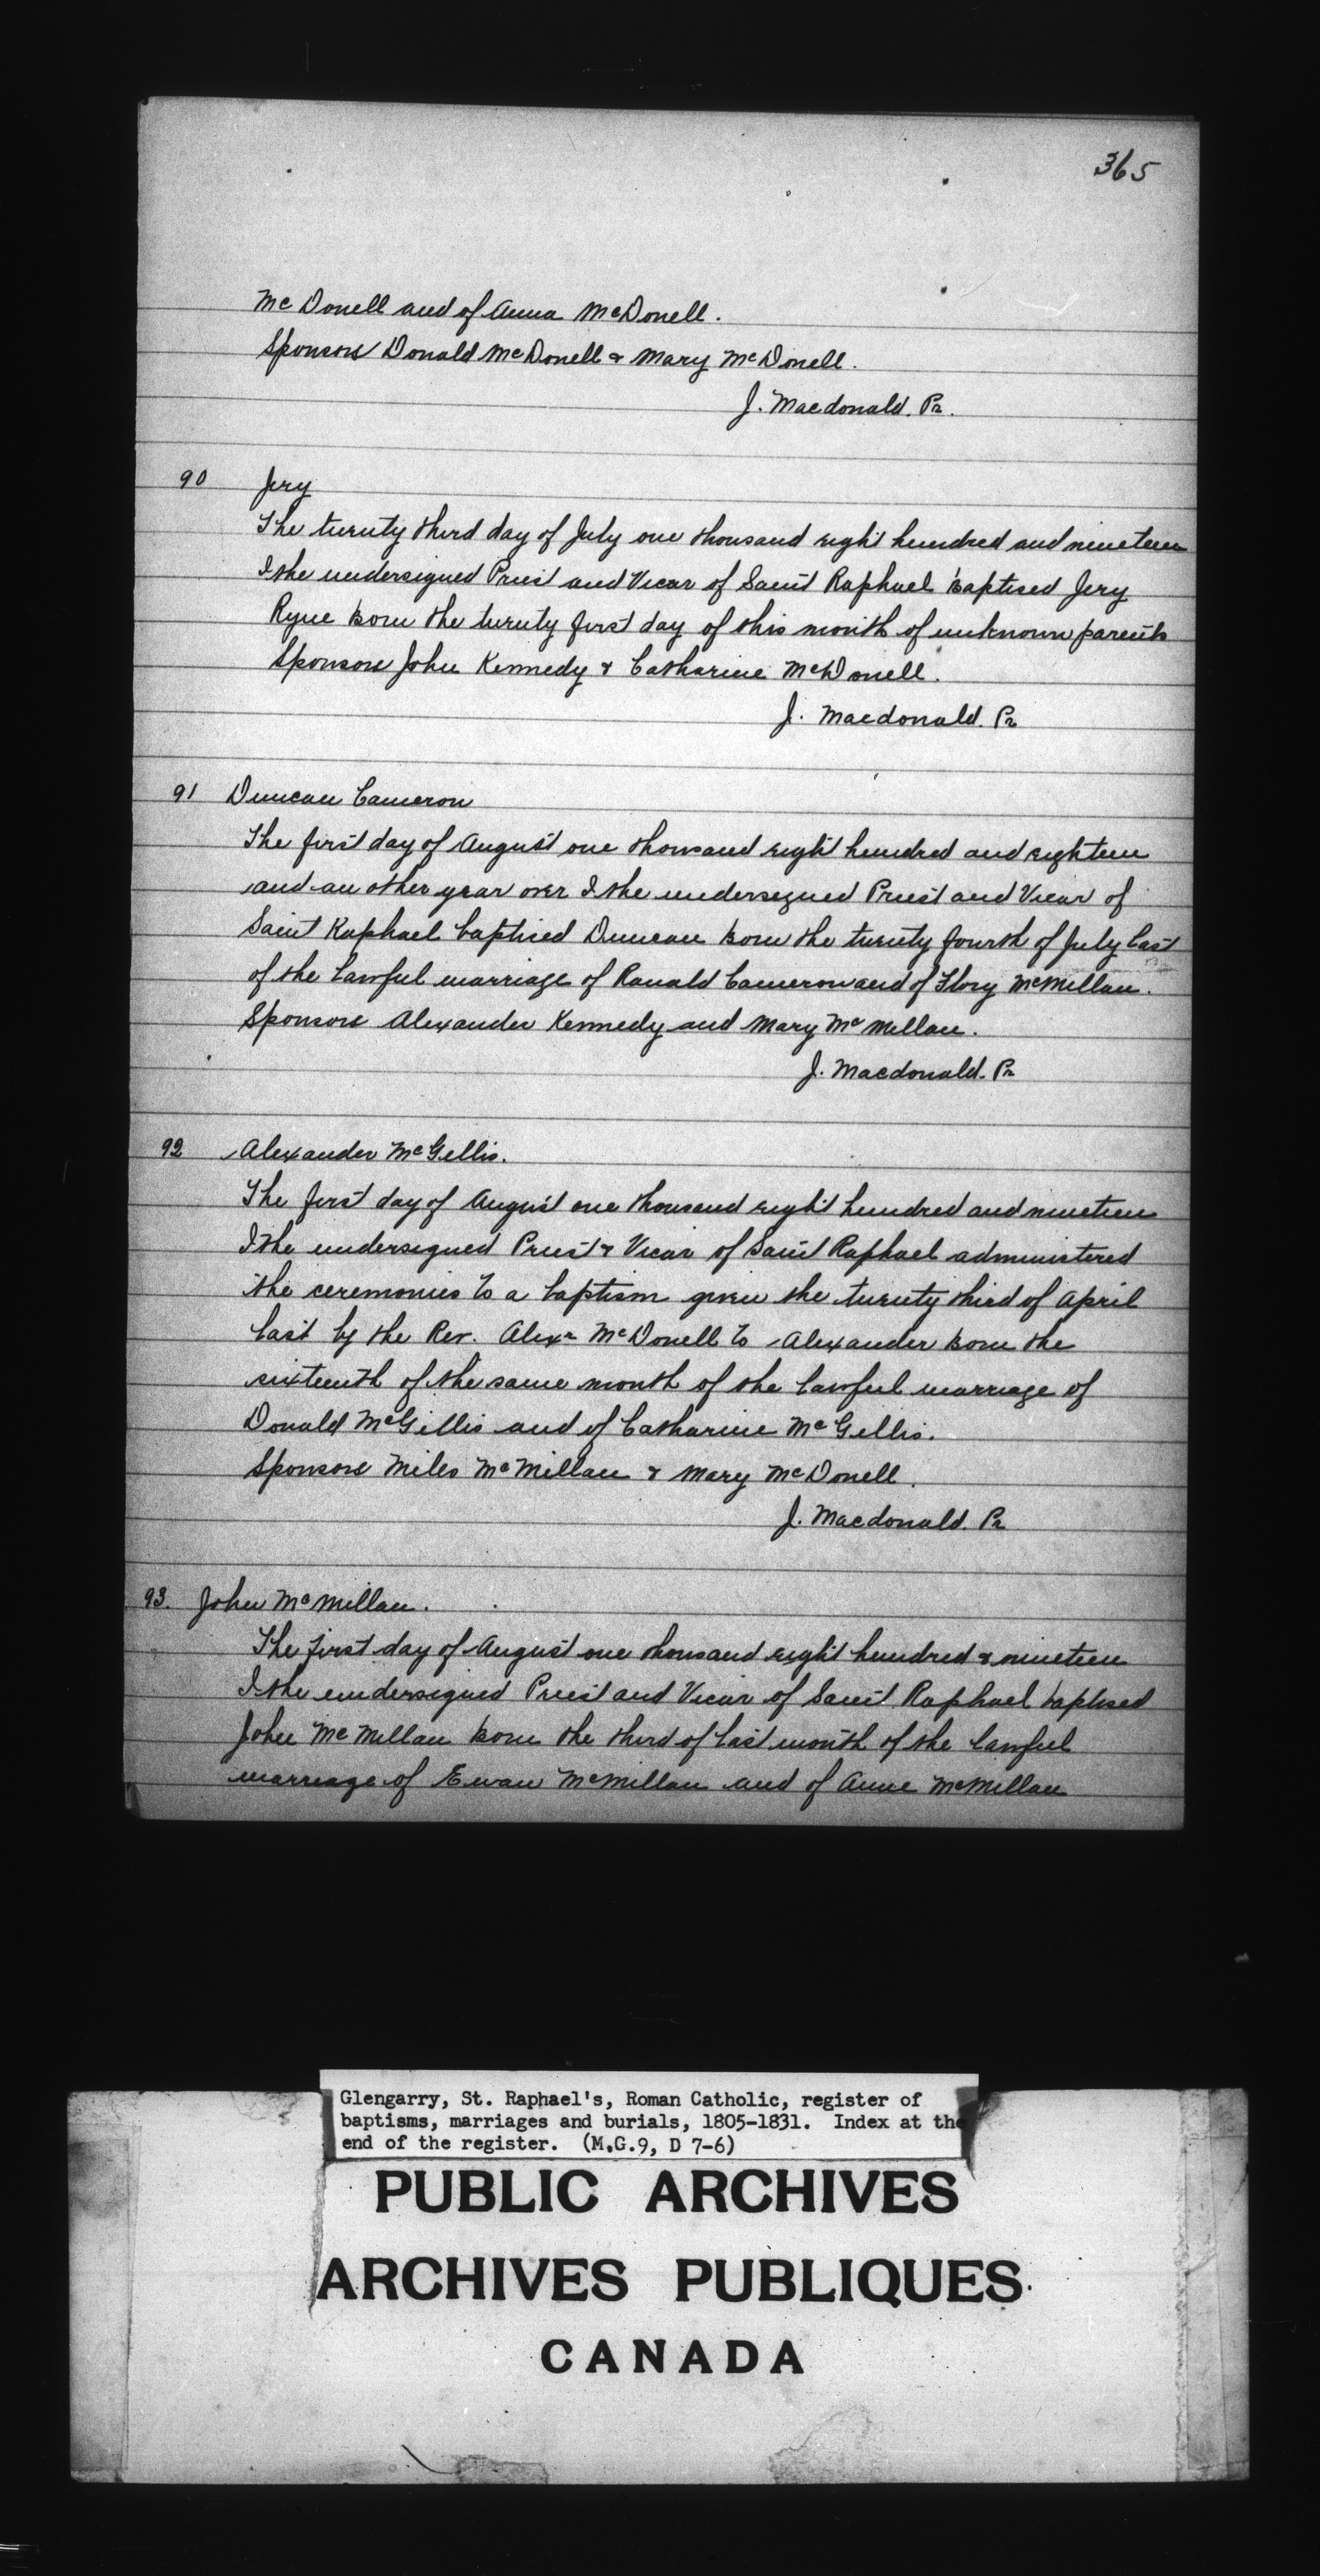 365
McDonell and of Anna McDonell.
Sponsors Donald McDonell & Mary McDonell.
J. Macdonald. Pr.
90 Jery
The twenty third day of July one thousand eight hundred and nineteen
I the undersigned Priest and Vicar of Saint Raphael baptised Jery
Ryne born the twenty first day of this month of unknown parents
Sponsors John Kennedy & Catharine McDonell.
J. Macdonald. Pr
91 Duncan Cameron
The first day of August one thousand eight hundred and eighteen
and an other year over I the undersigned Priest and Vicar of
Saint Raphael baptised Duncan born the twenty fourth of July last
of the lawful marriage of Ranald Cameron and of Flory McMillan.
Sponsors Alexander Kennedy and Mary McMillan.
J. Macdonald. Pr
92 Alexander McGillis.
The first day of August one thousand eight hundred and nineteen
I the undersigned Priest & Vicar of Saint Raphael administered
the ceremonies to a baptism given the twenty third of April
last by the Rev. Alexr McDonell to Alexander born the
sixteenth of the same month of the lawful marriage of
Donald McGillis and of Catharine McGillis.
Sponsors Miles McMillan & Mary McDonell.
J. Macdonald. Pr
93. John McMillan.
The first day of August one thousand eight hundred & nineteen
I the undersigned Priest and Vicar of Saint Raphael baptised
John McMillan born the third of last month of the lawful
marriage of Ewan McMillan and of Anne McMillan
Glengarry, St. Raphael's, Roman Catholic, register of
baptisms, marriages and burials, 1805-1831. Index at the
end of the register. (M.G.9, D 7-6)
PUBLIC ARCHIVES
ARCHIVES PUBLIQUES
CANADA